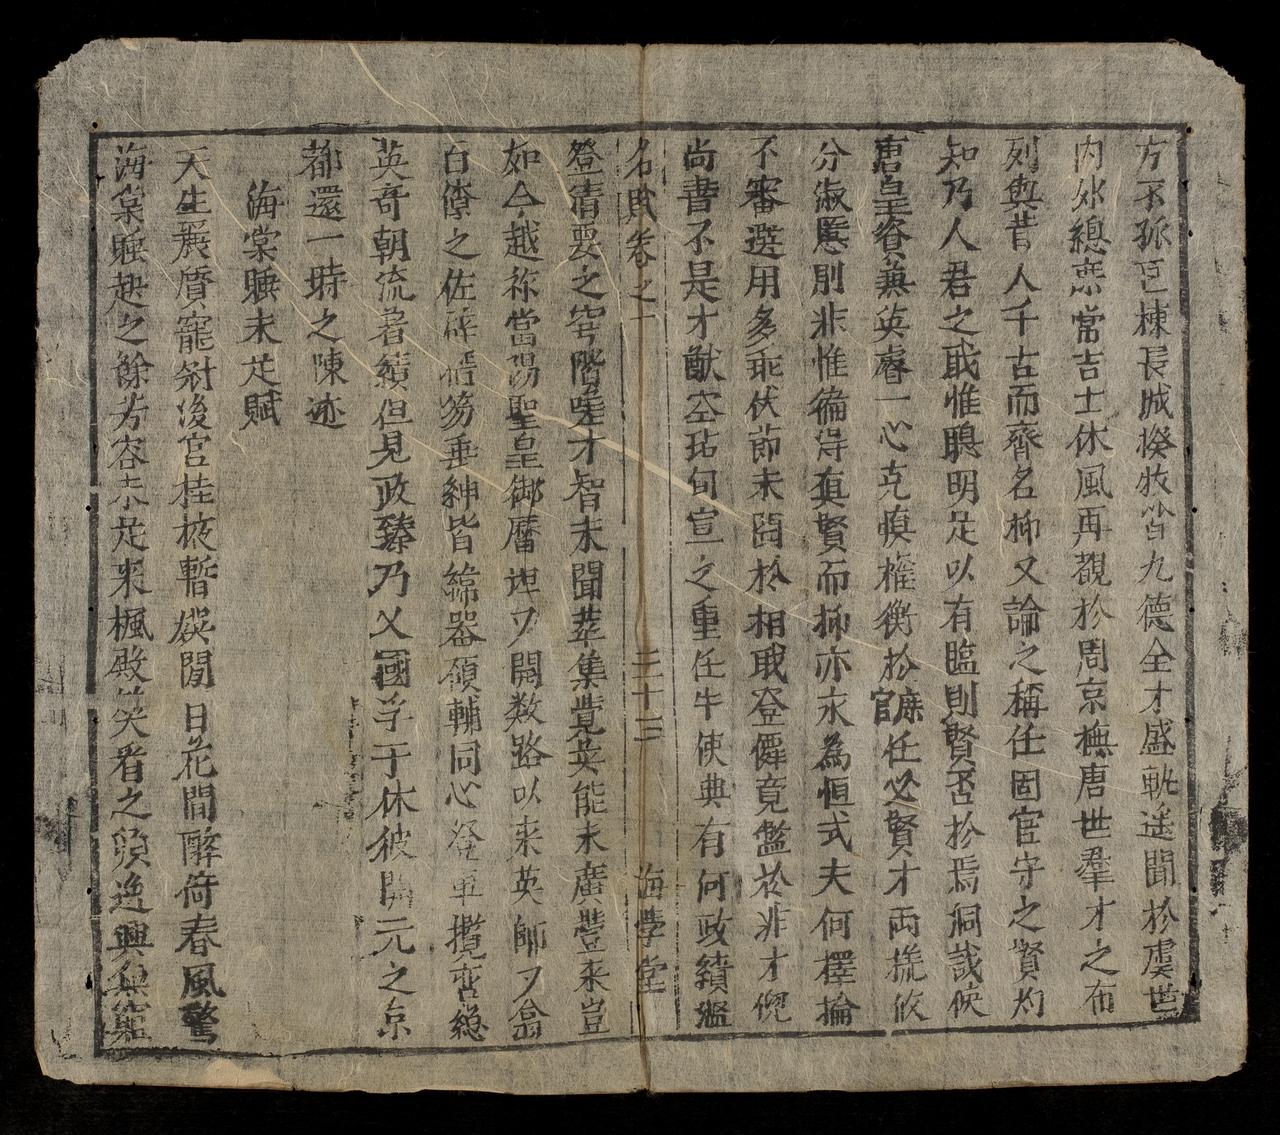 方不孤臣棟長城揆牧皆九德全才盛軌遥聞於虞世
内外總庶常吉士休風再觀於周京撫唐世羣才之布
列與昔人千古而齊名抑又論之稱任固官守之賢灼
知乃人君之耿惟聰明足以有臨則賢否於焉洞哉俟
唐皇睿兼英睿一心克慎權衡於庶官任必賢才両挑攸
分淑慝别非惟徧得真賢而抑亦永為恒式夫何擇掄
不審選用多乖伏節未啚於相耿登僊竟濫於非才倪
尚書不是才猷空玷旬宣之重任牛使典有何政績濫
名賦卷之一 三十三 海學堂
登清要之穹階噫才智未聞萃集覽英能未廣豈來豈
如今越祢當陽聖皇御曆逴乃開数路以来英師乃翕
百僚之佐碎搢笏垂紳皆締器碩輔同心登車攬轡總
英竒朝流着績但見政臻乃乂國孚于休彼開元之京
都還一時之陳迹
海棠睡未足賦
天生麗質寵冠後宮桂掖暫娱閒日花間醉倚春風驚
海棠睡起之餘芳容未足来楓殿笑看之頃逸興無窮